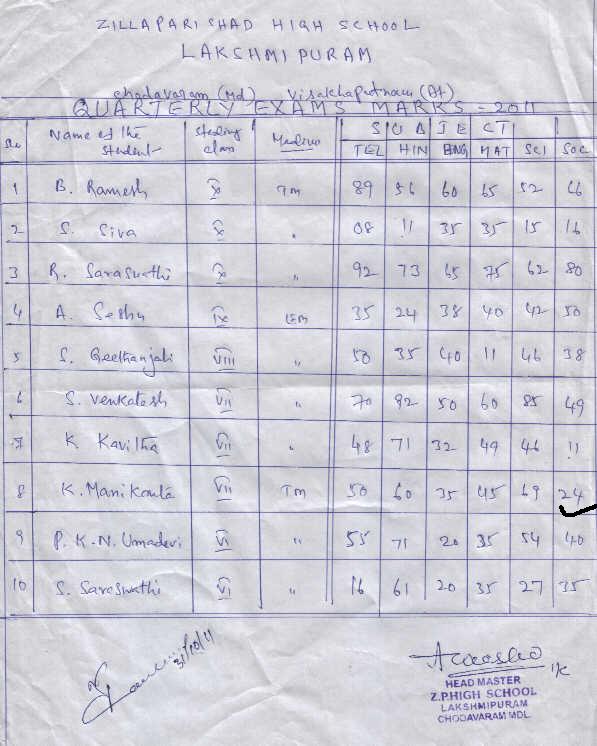 ZILLAPARISHAD HIGH SCHOOL
LAKSHMIPURAM
Chodavaram (Md) Visakhapatnam (Dt)
QUARTERLY EXAMS MARKS - 2011
Name of the student Studing class Medium SUBJECT
TEL HIN ENG MAT SCI SOC
1 B. Ramesh X TM 89 56 60 65 52 66
2 S. Siva X " 08 11 35 35 15 16
3 R. Saraswathi X " 92 73 65 75 62 80
4 A. Seshu IX EM 35 24 38 40 42 50
5 S. Geethanjali VIII " 50 35 40 11 46 38
6 S. Venkatesh VII " 70 92 50 60 85 49
7 K Kavitha VII " 48 71 32 49 46 11
8 K. Manikanta VII TM 50 60 35 45 69 24
9 P. K. N. Umadevi VI " 55 71 20 35 54 40
10 S. Saraswathi VI " 16 61 20 35 27 35
31/10/11
HEAD MASTER
Z.P.HIGH SCHOOL
LAKSHMIPURAM
CHODAVARAM MDL.